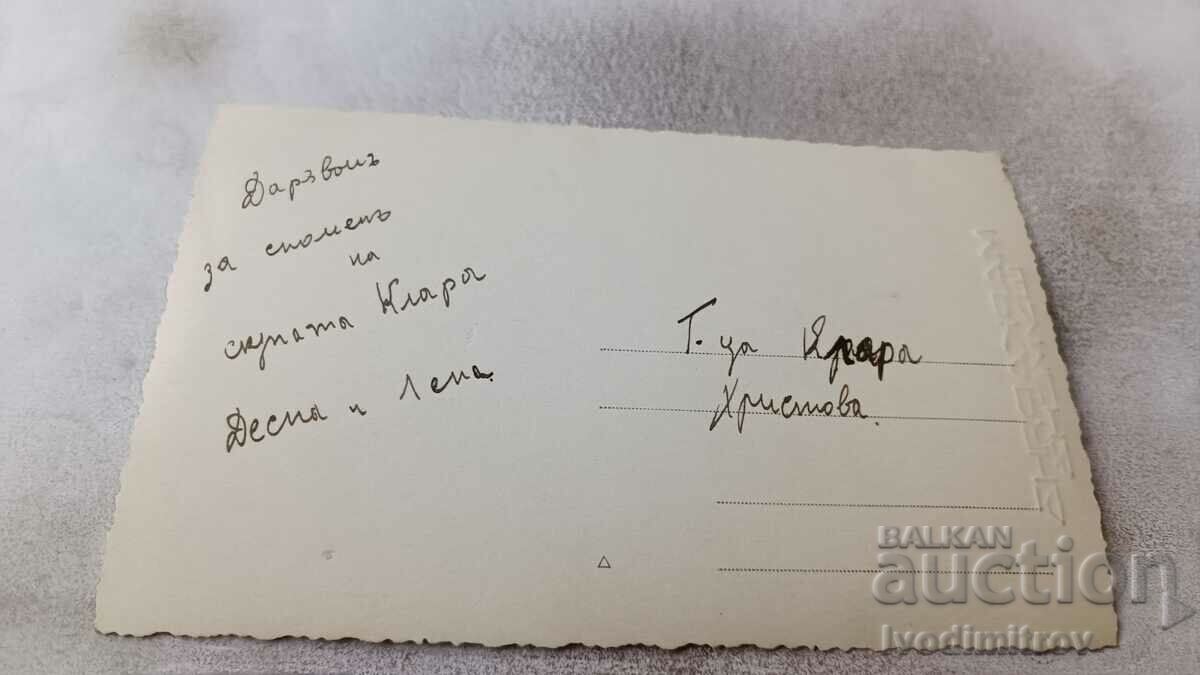 Дарзвомъ
за споменъ
на
скупата Клара
Десна и Лена.
Г-ца Клара
Христова.
BALKAN
auction
Ivodimitrov